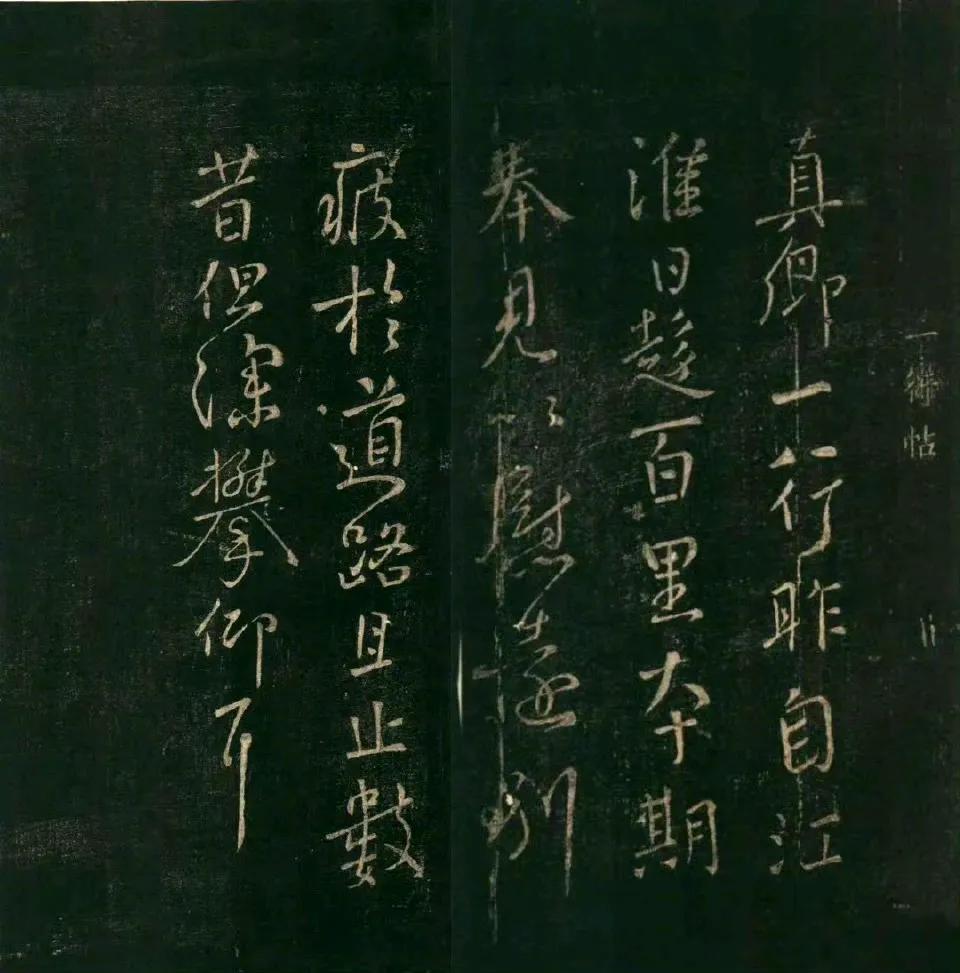 一帖
真卿一行昨自江
淮日趍百里夲期
奉見以慰遠別
疲於道路且止數
昔但深攀仰耳